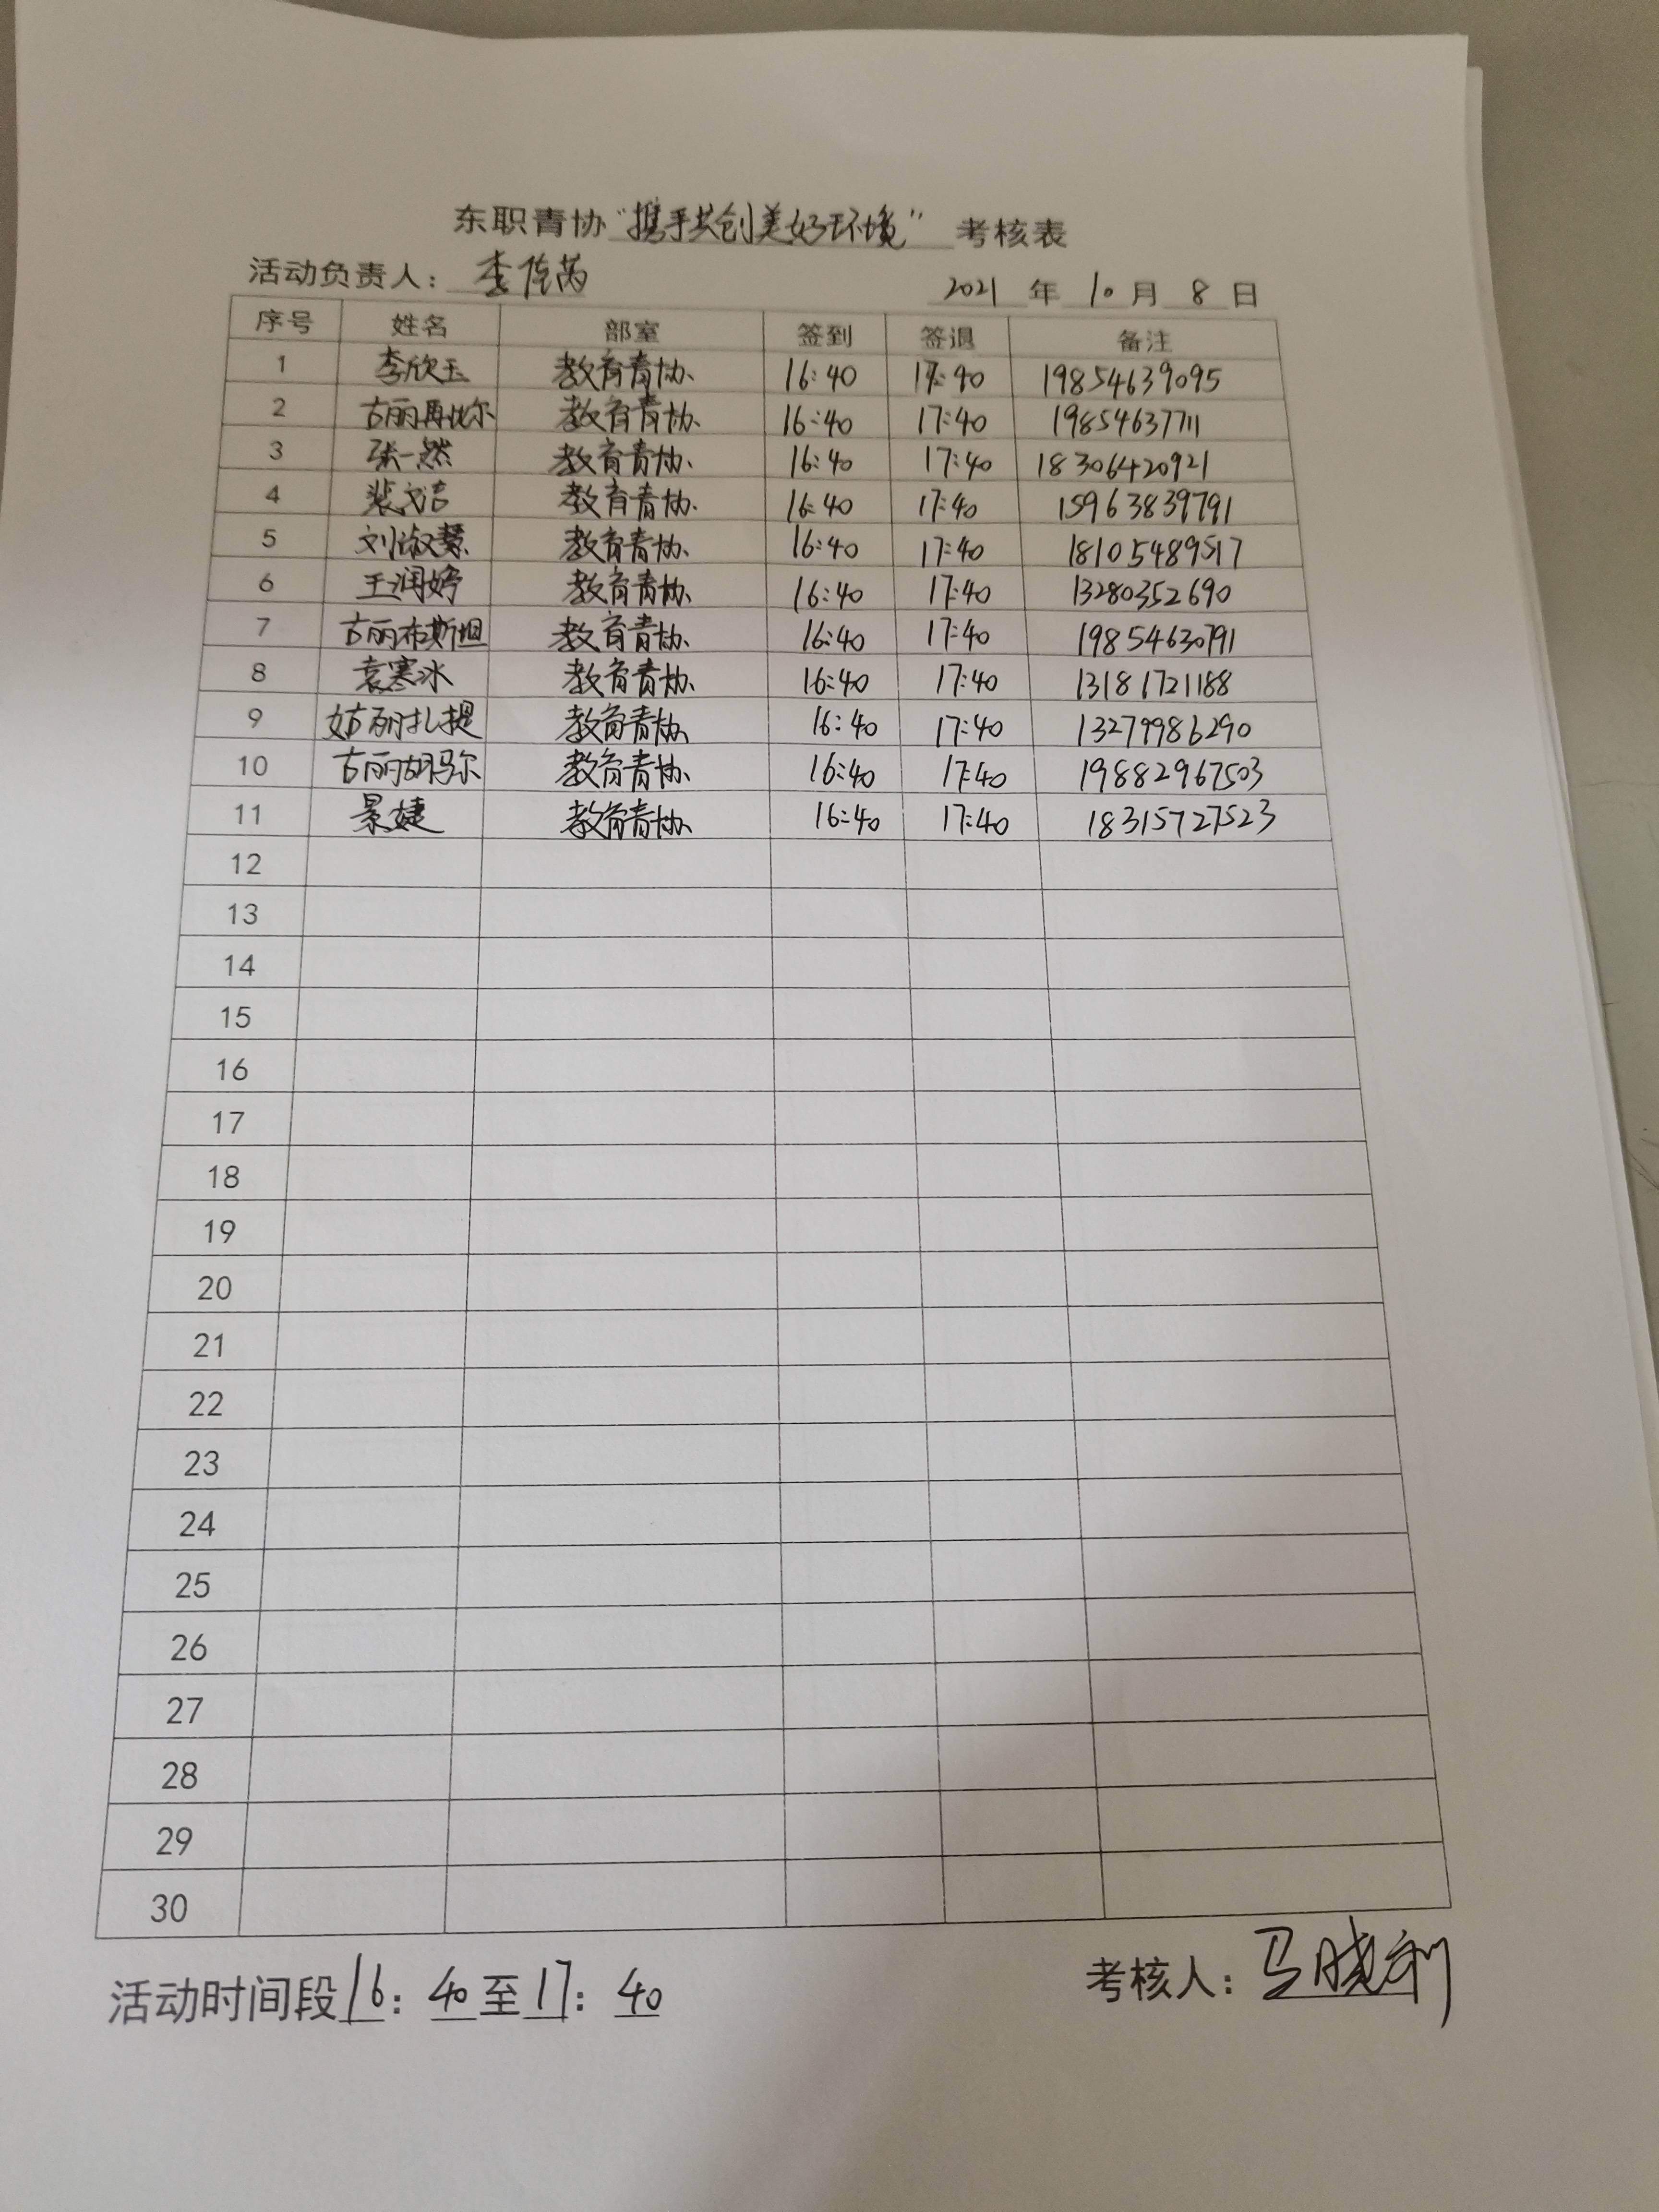 东职青协“携手共创美好环境”考核表
活动负责人：李佳芮 2021 年 10 月 8 日
序号 姓名 部室 签到 签退 备注
1 李欣玉 教育青协 16:40 17:40 19854639095
2 古丽再比尔 教育青协 16:40 17:40 19854637711
3 张一然 教育青协 16:40 17:40 18306420921
4 裴文洁 教育青协 16:40 17:40 15963839791
5 刘淑慧 教育青协 16:40 17:40 18105489517
6 王润婷 教育青协 16:40 17:40 13280352690
7 古丽布斯坦 教育青协 16:40 17:40 19854630791
8 袁寒冰 教育青协 16:40 17:40 13181721188
9 姑丽扎提 教育青协 16:40 17:40 13279986290
10 古丽胡玛尔 教育青协 16:40 17:40 19882967503
11 景婕 教育青协 16:40 17:40 18315727523
12
13
14
15
16
17
18
19
20
21
22
23
24
25
26
27
28
29
30
活动时间段16：40至17：40 考核人：马晓利